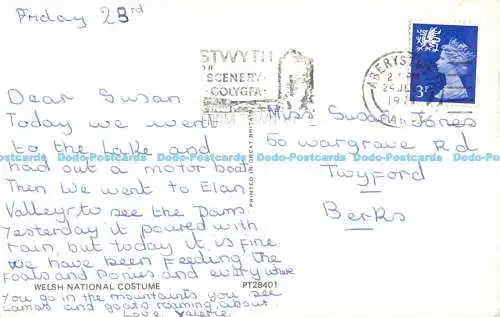 Friday 23rd
STWYTH
FOR
SCENERY
GOLYGFA
ABERYST
24 JUL
197
3P
Dear Susan
Today we went
to the Lake and
had out a motor boat.
Then we went to Elan
Valley to see the Dams.
Yesterday it poured with
rain, but today it is fine.
We have been feeding the
Foals and Ponies and every where
you go in the mountains you see
Lamas and goats roaming about.
Love Valerie
Miss Susan Jones
50 Wargrave Rd
Twyford
Berks
PRINTED IN GREAT BRITAIN
WELSH NATIONAL COSTUME
PT28401
Dodo-Postcards Dodo-Postcards Dodo-Postcards Dodo-Postcards Dodo-Postcards Dodo-Postcards